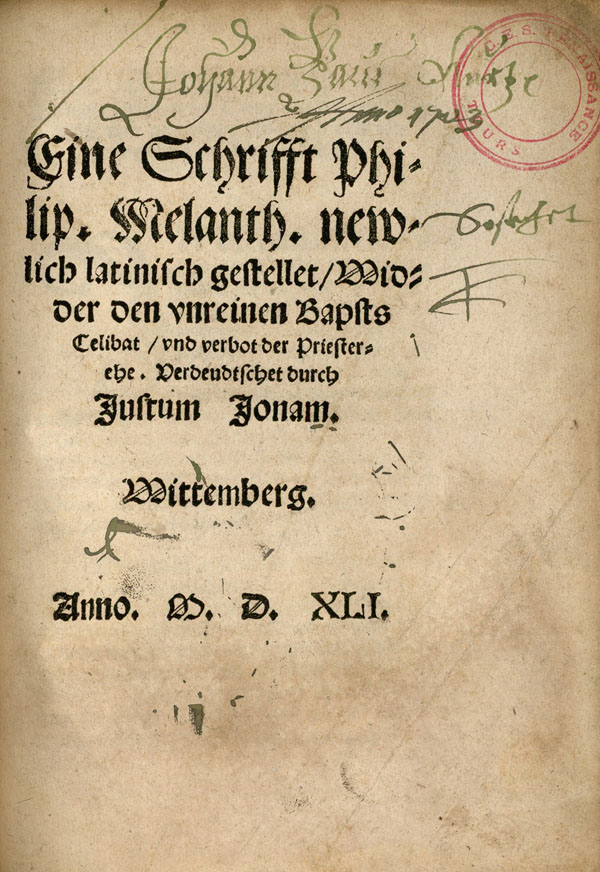 Johann
Anno 1703
C. E. S. RENAISSANCE
TOURS
Eine Schrifft Phi-
lip. Melanth. new-
lich latinisch gestellet/Wid-
der den vnreinen Bapsts
Celibat / vnd verbot der Priester-
ehe. Verdeudtschet durch
Justum Jonam.
Wittemberg.
Anno. M. D. XLI.